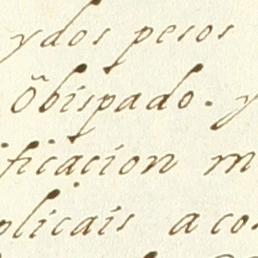 ydos pesos
Õbispado. y
ificacion m
plicais aco